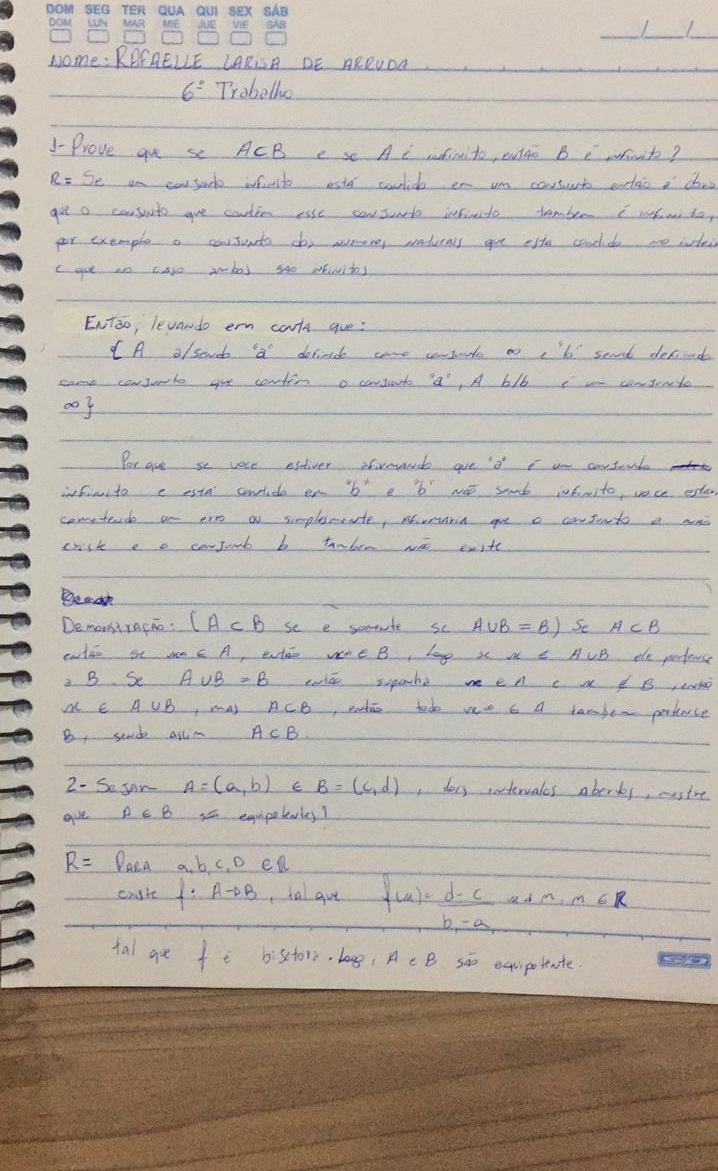 DOM SEG TER QUA QUI SEX SÁB
DOM LUN MAR MIÉ JUE VIE SÁB
/ /
NOME: RAFAELLE LARISA DE ARRUDA
6º Trabalho
1- Prove que se A⊂B e se A é infinito, então B é infinito?
R= Se um conjunto infinito está contido em um conjunto então é óbvio
que o conjunto que contém esse conjunto infinito também é infinito,
por exemplo o conjunto dos numeros naturais que esta contido no inteiro
e que no caso ambos são infinitos
ENTÃO, levando em conta que:
{ A a/sendo "a" definido como conjunto ∞ e "b" sendo definido
como conjunto que contém o conjunto "a", A b/b é um conjunto
∞}
Por que se voce estiver afirmando que "a" é um conjunto
infinito e está contido em "b" e "b" não sendo infinito, voce estara
cometendo um erro ou simplesmente, afirmaria que o conjunto a não
existe e o conjunto b tambem não existe.
Demonstração: (A ⊂ B se e somente se A∪B = B) Se A⊂B
então se x ∈ A, então x ∈ B, logo se x ∈ A∪B ele pertence
a B. Se A∪B = B então suponha x ∈ A e x ∉ B, então
x ∈ A∪B, mas A⊂B, então todo x ∈ A tambem pertence
B, sendo assim A⊂B.
2- Sejam A=(a,b) e B=(c,d), dois intervalos abertos, mostre
que A e B são equipotentes?
R= PARA a,b,c,D ∈ R
existe f: A→B, tal que f(x)= d-c / b-a x+n, n ∈ R
tal que f é bijetora. Logo, A e B são equipotente.